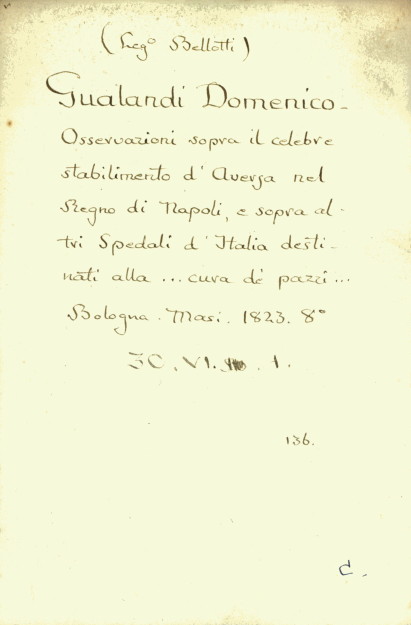 (Leg° Bellotti)
Gualandi Domenico -
Osservazioni sopra il celebre
stabilimento d'Aversa nel
Regno di Napoli, e sopra al-
tri Spedali d'Italia desti-
nati alla ... cura de' pazzi ...
Bologna. Masi. 1823. 8°
3C. VI. 1.
136.
C.